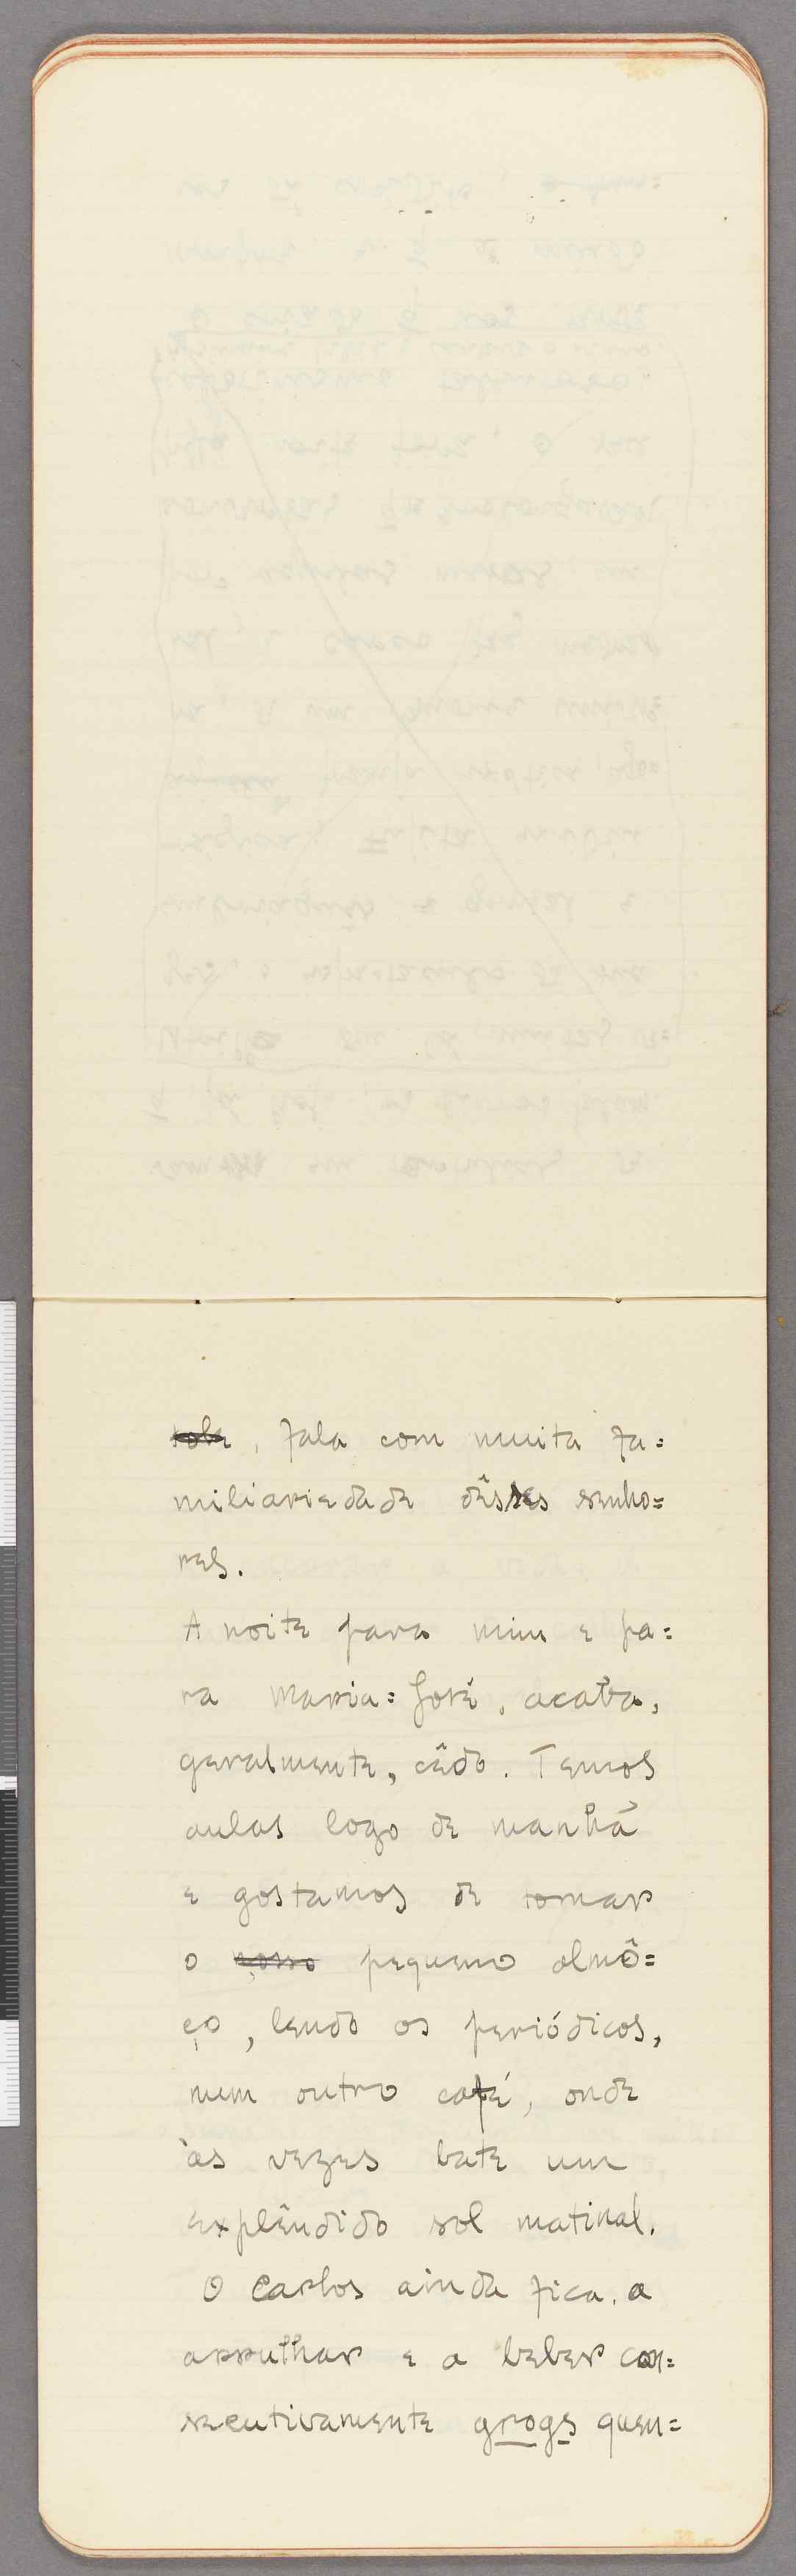 , fala com muita fa=
miliariedade dêsses senho=
res.
A noite para mim e pa=
ra Maria=José, acaba,
geralmente, cêdo. Temos
aulas logo de manhã
e gostamos de tomar
o nosso pequeno almô=
ço, lendo os periódicos,
num outro café, onde
às vezes bate um
explêndido sol matinal.
O Carlos ainda fica, a
arrulhar e a beber con=
secutivamente grogs quen=